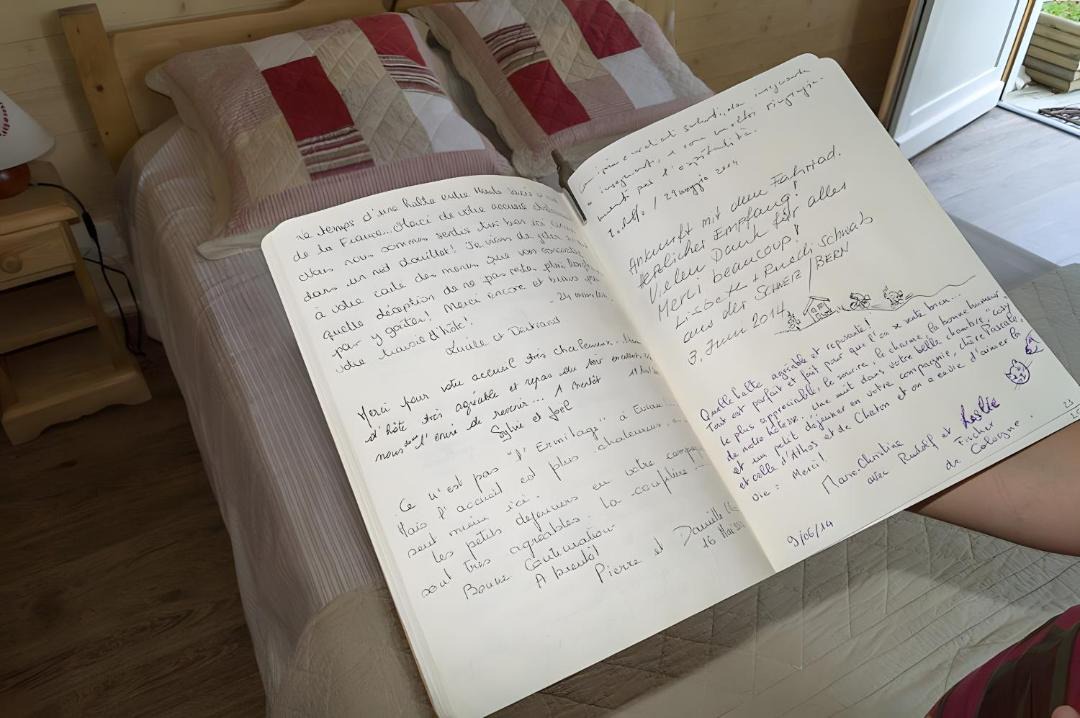 temps d'une halte entre
de la France... Merci de votre accueil
nous nous sommes sentis très bien ici
dans un nid douillet! Je viens de jeter
à votre carte des menus que vos
quelle déception de ne pas rester plus
pour y goûter! Merci encore et bravo pour
votre maison d'hôte!
Lucile et Bertrand
Merci pour votre accueil très chaleureux.
d'hôte très agréable et repas du soir
nous l'envie de revenir... A bientôt
Sylvie et Joël
Ce n'est pas "l'Ermitage" à
Mais l'accueil est plus chaleureux,
sent mieux ici.
Les petits déjeuners en votre
sont très agréables. la confiture
Bonne Continuation
A bientôt
Pierre et Danielle
16 Mai
insegnante
insegnanti,
per l'ospitalità.
/ 29 maggio 2014
Ankunft mit dem Fahrrad.
Herzlicher Empfang!
Vielen Dank für alles
Merci beaucoup!
Lisbeth + Ruedi Schwab
aus der SCHWEIZ / BERN
3. Juni 2014
Quelle halte agréable et reposante!
Tout est parfait et fait pour que l'on se sente bien...
le plus appréciable, le sourire, le charme, la bonne humeur
de notre hôtesse. Une nuit dans votre belle chambre "cosy"
et un petit déjeuner en votre compagnie, chère Pascale,
et celle d'Athos et de Chaton et on a envie d'aimer la
vie: Merci!
Marie-Christine
avec Rudolf et Leslie
Fischer
de Cologne.
9/06/14